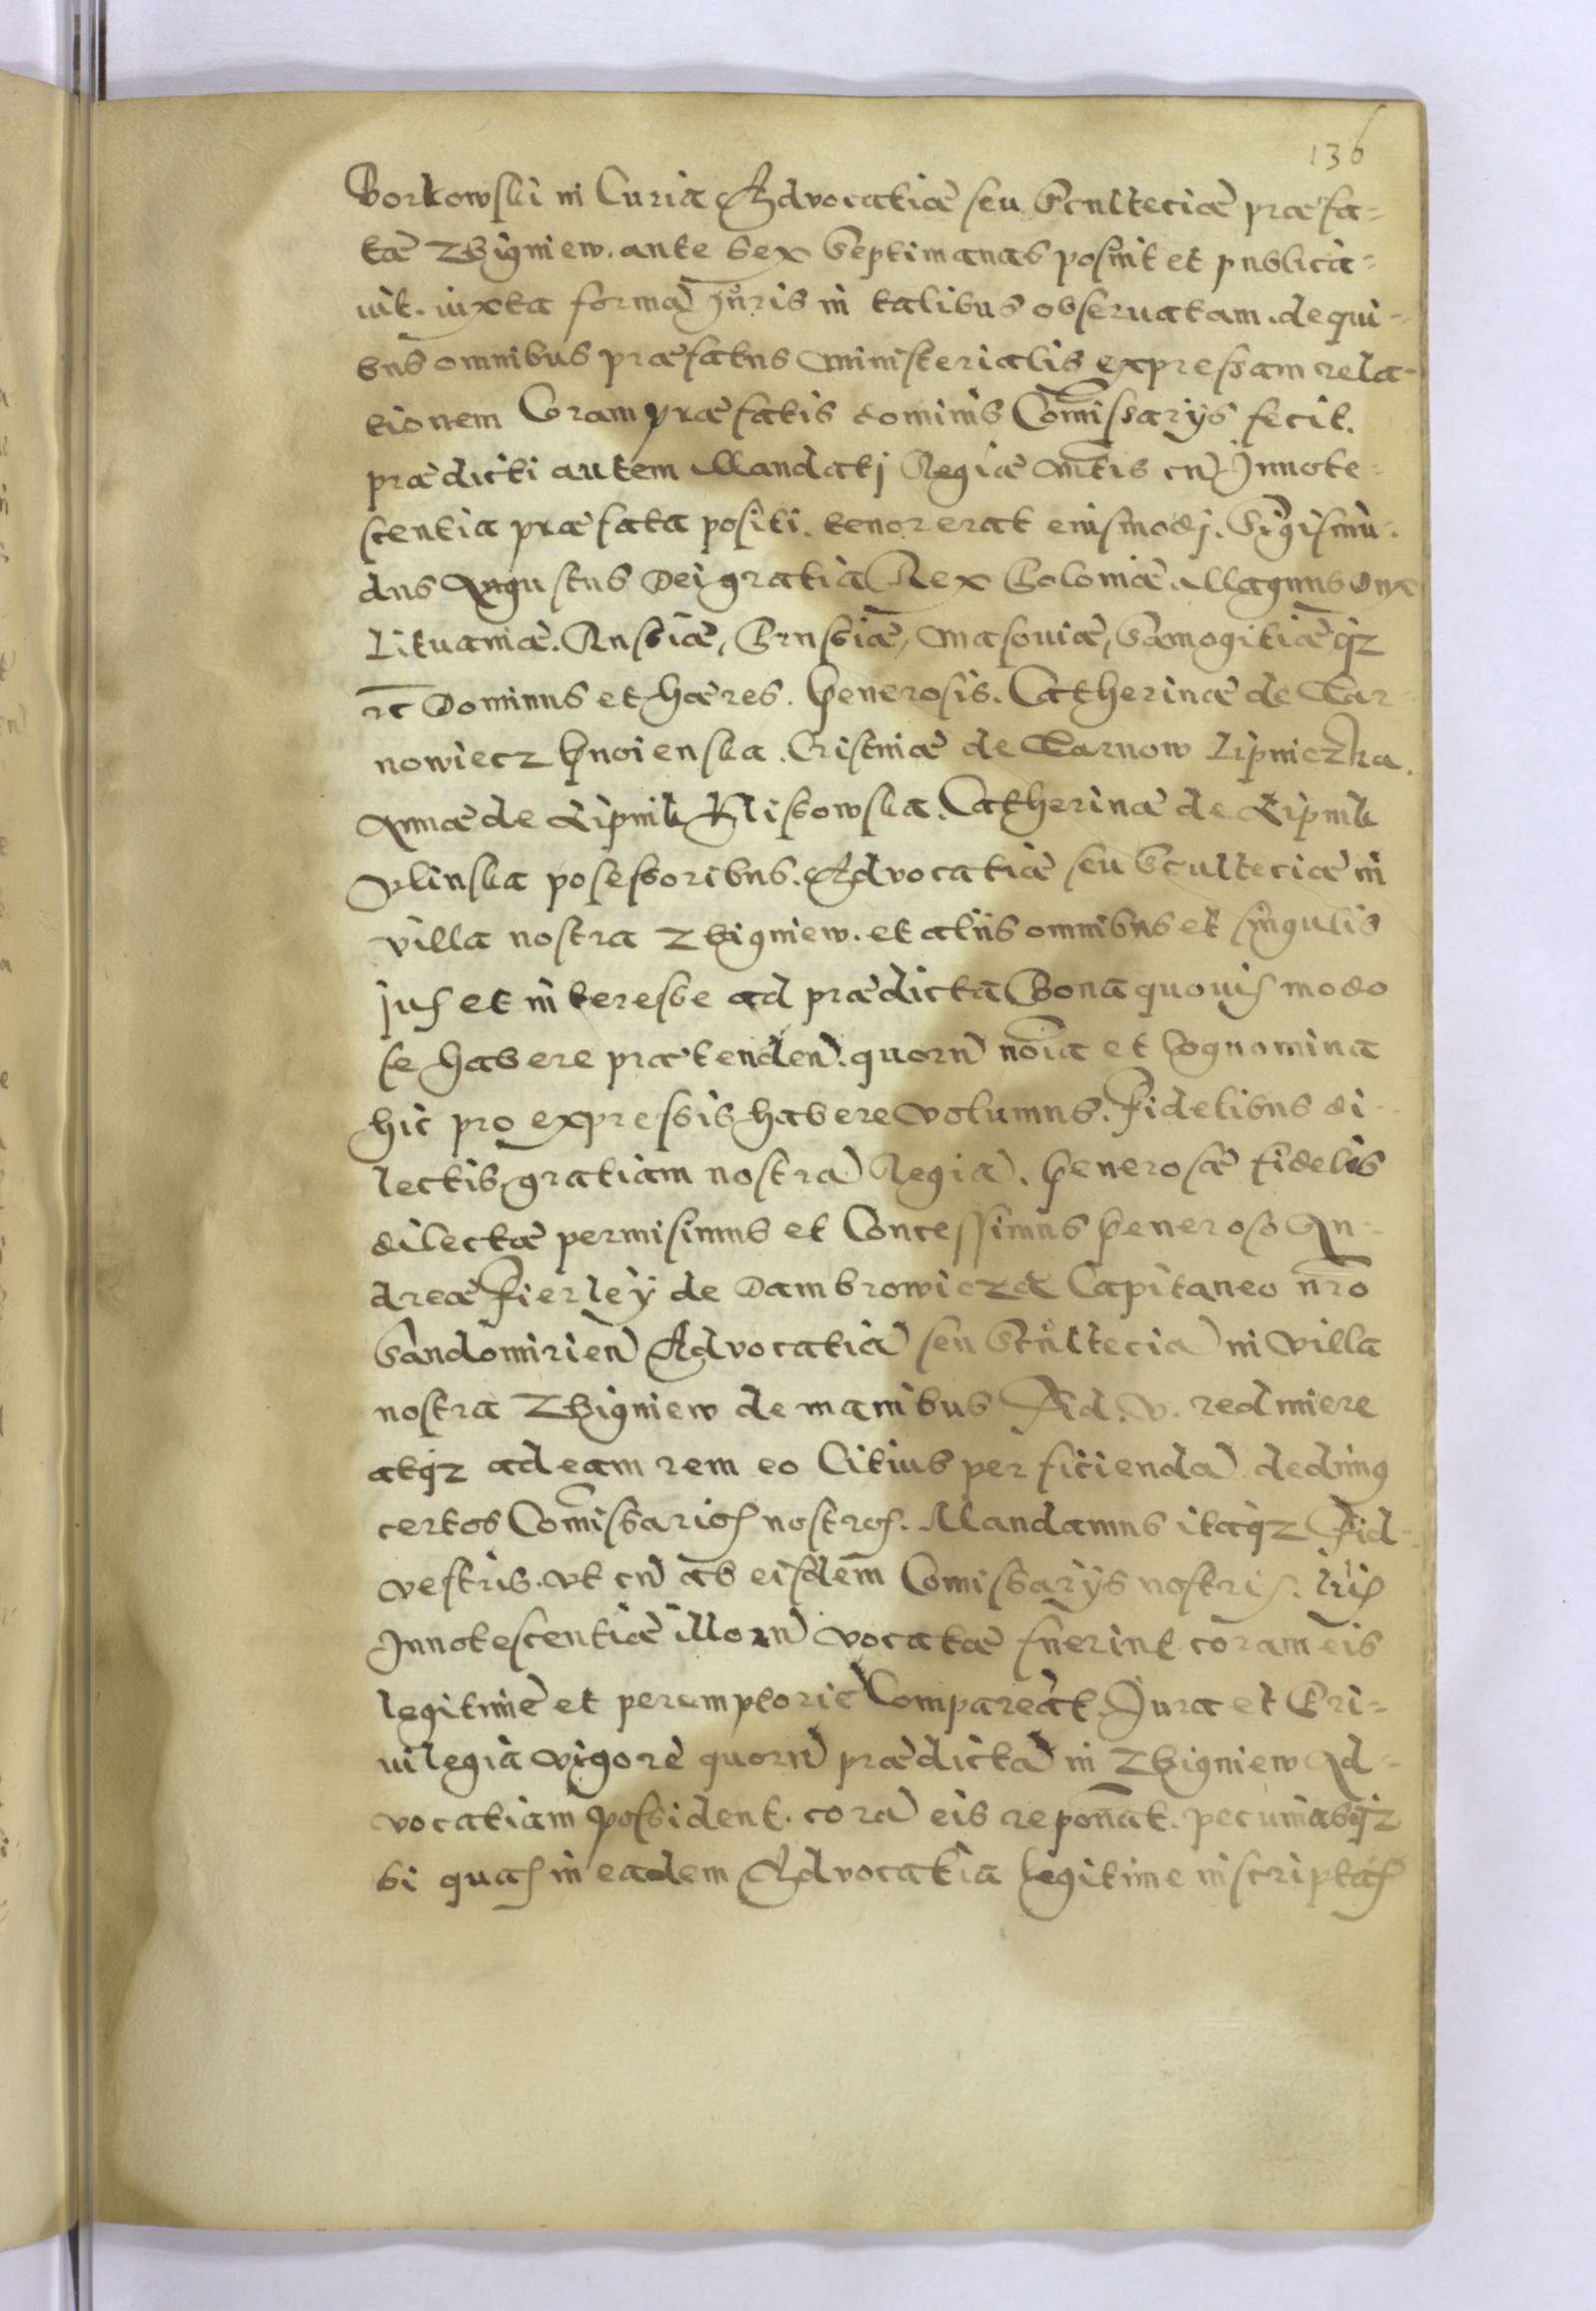 136
Borkowski in Curia Advocatiæ seu Sculteciæ præfa=
tæ Zbigniew. ante sex Septimanas posuit et publica=
uit. iuxta formā Juris in talibus obseruatam. de qui-
bus omnibus præfatus Ministerialis expressam rela-
tionem Coram præfatis dominis Comissarijs fecit.
prædicti autem Mandatj Regiæ Mtis cū Innote=
scentia præfata positi. tenor erat eiusmodj. Sigismū-
dus Augustus Dei gratia Rex Poloniæ. Magnus Dux
Lituaniæ. Russiæ, Prussiæ, Masouiæ, Samogitiæqz
rc Dominus et hæres. Generosis. Catherinæ de Tar
nowiecz Gnoienska. Cristinæ de Tarnow Lipniczka.
Annæ de Lipnik Klissowska. Catherinæ de Lipnik
Orlinska posessoribus. Advocatiæ seu Sculteciæ in
villa nostra Zbigniew. et aliis omnibus et singulis
jus et interesse ad prædicta Bona quouis modo
se habere prætenden̄. quorū noīa et Cognomina
hic pro expressis habere volumus. Fidelibus di-
lectis gratiam nostrā Regiā. Generosæ fidelis
dilectæ permisimus et Concessimus Generoso An-
dreæ Fierleÿ de Dambrowicza Capitaneo nr̄o
Sandomirien̄ Advocatiā seu Scultecia in villa
nostra Zbigniew de manibus Fid. v. redimere
atqz ad eam rem eo Citius perficiendā dedimus
certos Comissarios nostros. Mandamus itaqz Fid-
vestris. vt cū ab eisdem Comissarijs nostris. lr̄is
Innotescentiæ illorū vocatæ fuerint coram eis
legitime et peremptorie Compareāt. Jura et Pri=
uilegia vigore quorū prædictā in Zbigniew Ad-
vocatiam possident. corā eis reponāt. pecuniasqz
si quas in eadem Advocatia legitime inscriptas